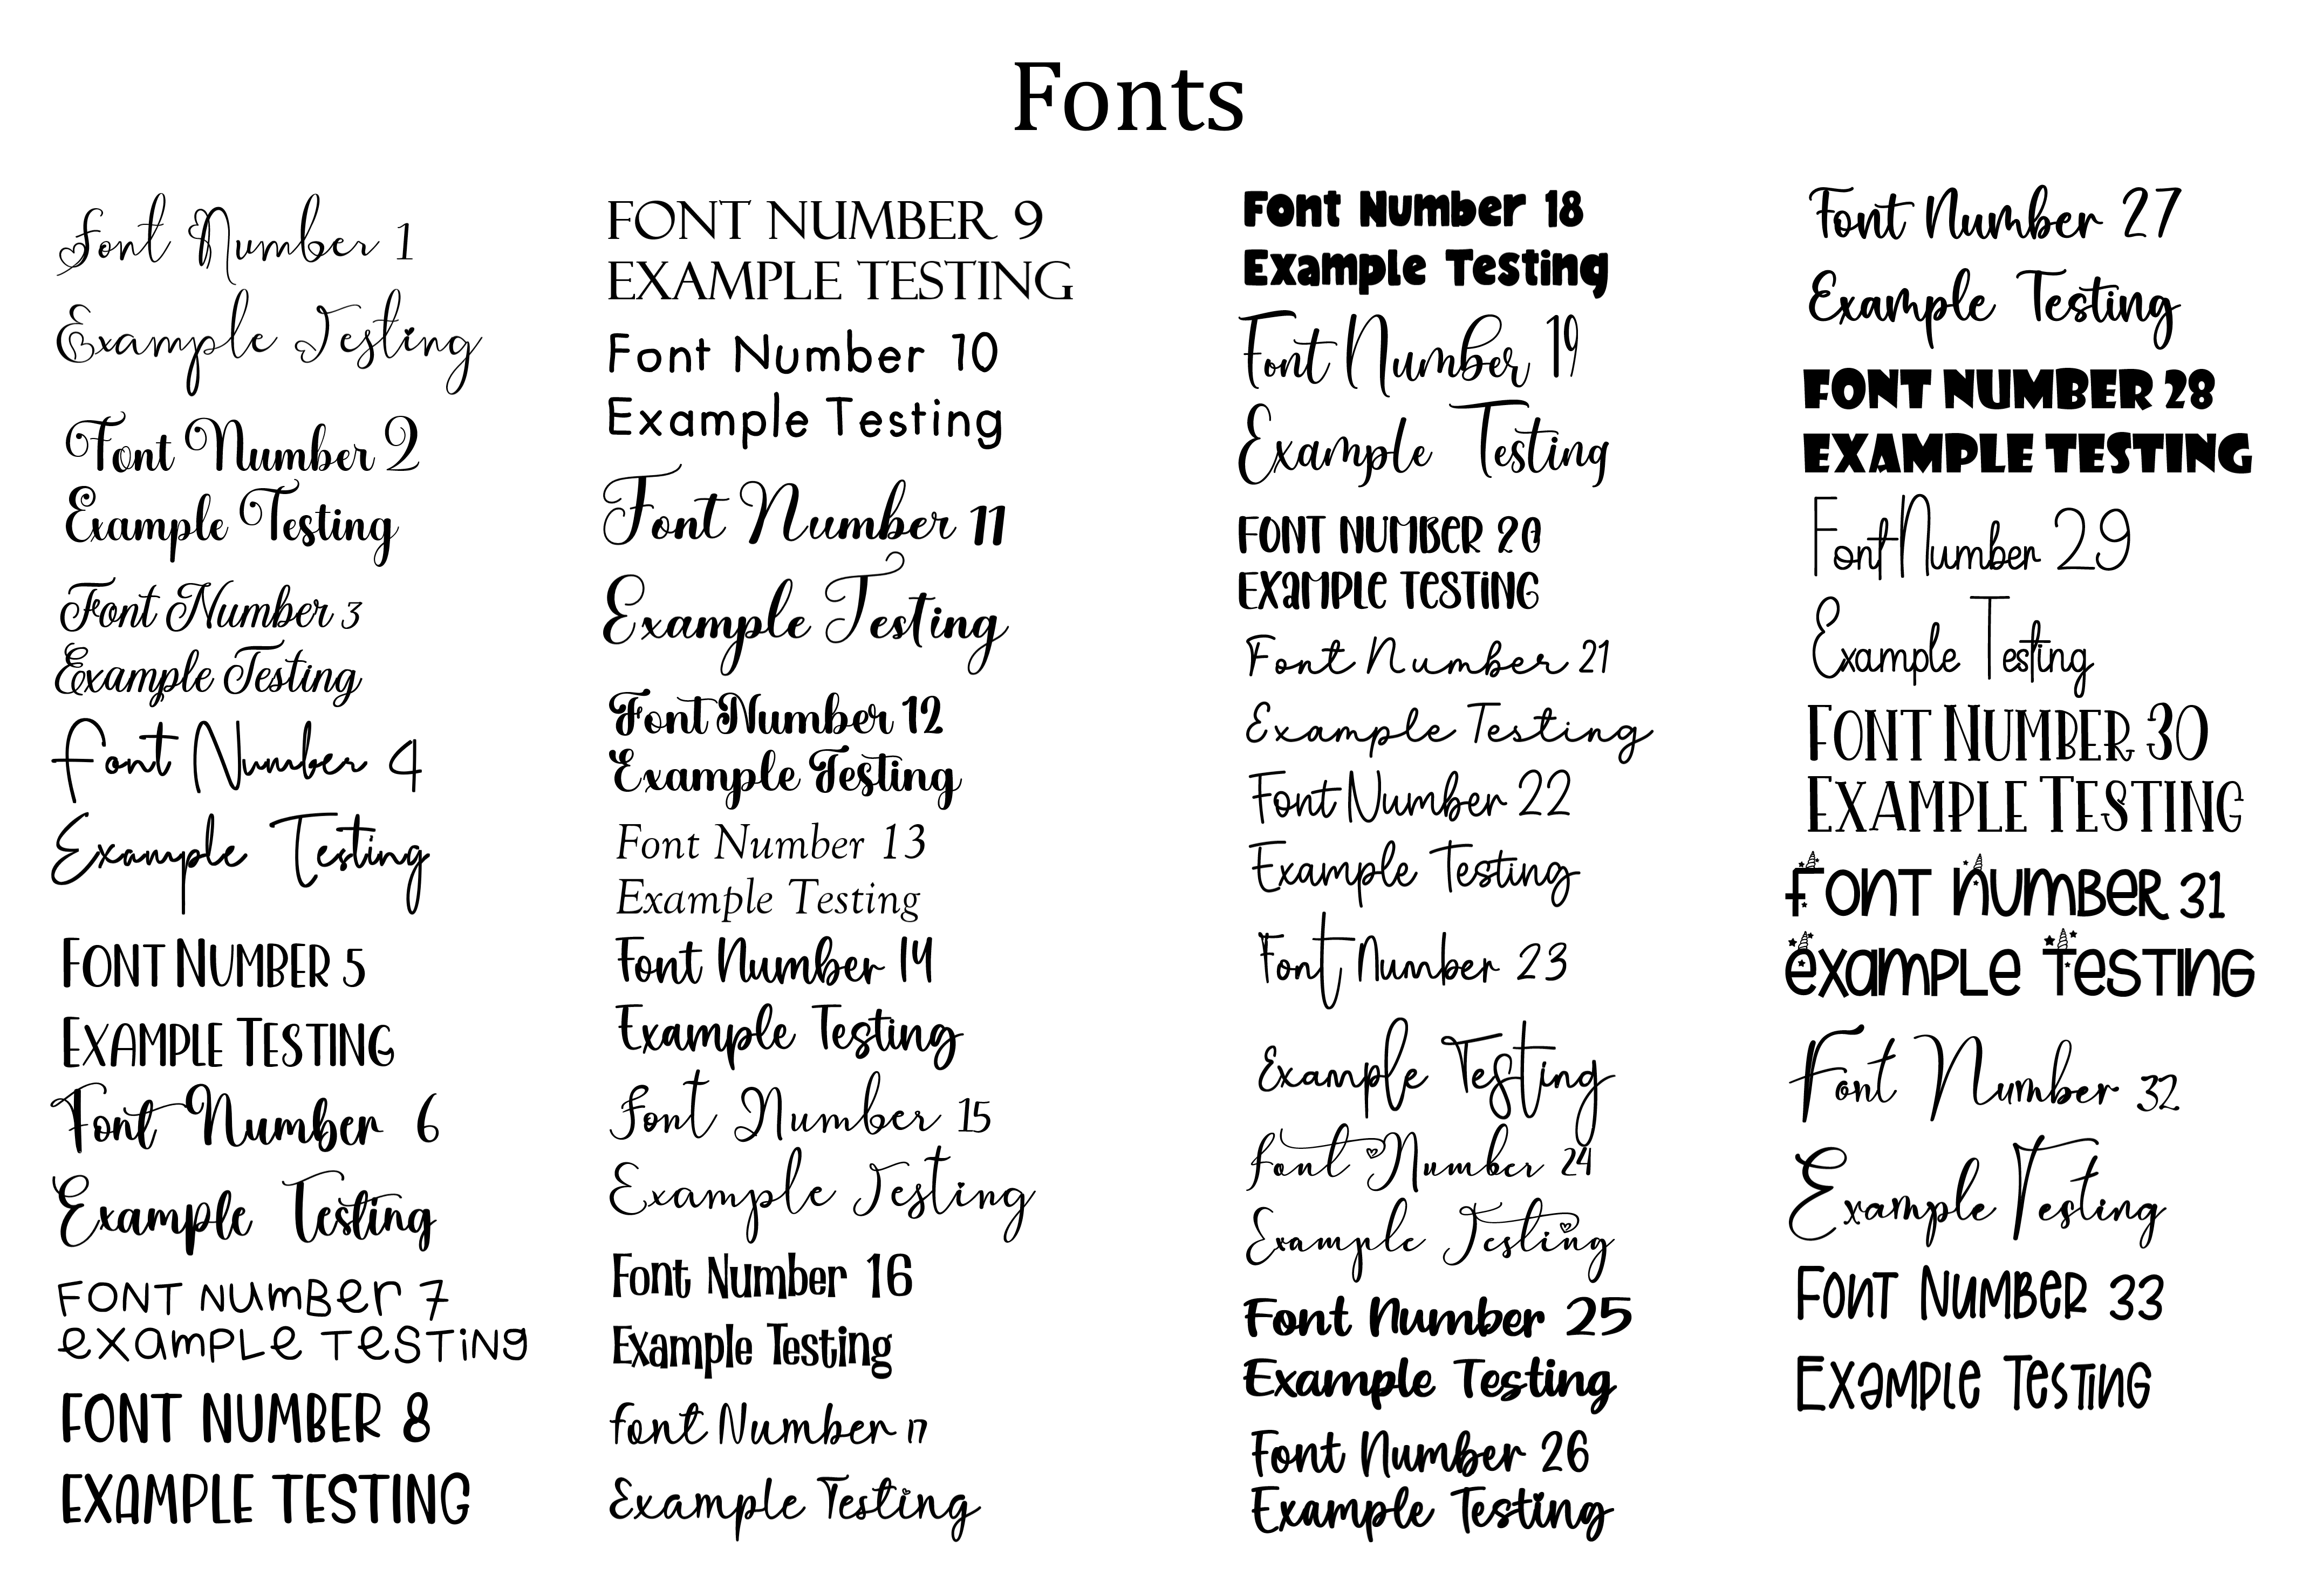 Fonts
Font Number 1
Example Testing
Font Number 2
Example Testing
Font Number 3
Example Testing
Font Number 4
Example Testing
FONT NUMBER 5
EXAMPLE TESTING
Font Number 6
Example Testing
FONT NumBer 7
exampLe TeSTiNg
FONT NUMBER 8
EXAMPLE TESTING
FONT NUMBER 9
EXAMPLE TESTING
Font Number 10
Example Testing
Font Number 11
Example Testing
Font Number 12
Example Testing
Font Number 13
Example Testing
Font Number 14
Example Testing
Font Number 15
Example Testing
Font Number 16
Example Testing
font Number 17
Example Testing
Font Number 18
Example Testing
Font Number 19
Example Testing
FONT NUMBER 20
EXaMPLE TESTiNG
Font Number 21
Example Testing
Font Number 22
Example Testing
Font Number 23
Example Testing
Font Number 24
Example Testing
Font Number 25
Example Testing
Font Number 26
Example Testing
Font Number 27
Example Testing
FONT NUMBER 28
EXAMPLE TESTING
Font Number 29
Example Testing
FONT NUMBER 30
EXAMPLE TESTING
FONT NumBeR 31
exampLe TesTING
Font Number 32
Example Testing
FONT NUMBeR 33
EXaMPLe TeSTiNG